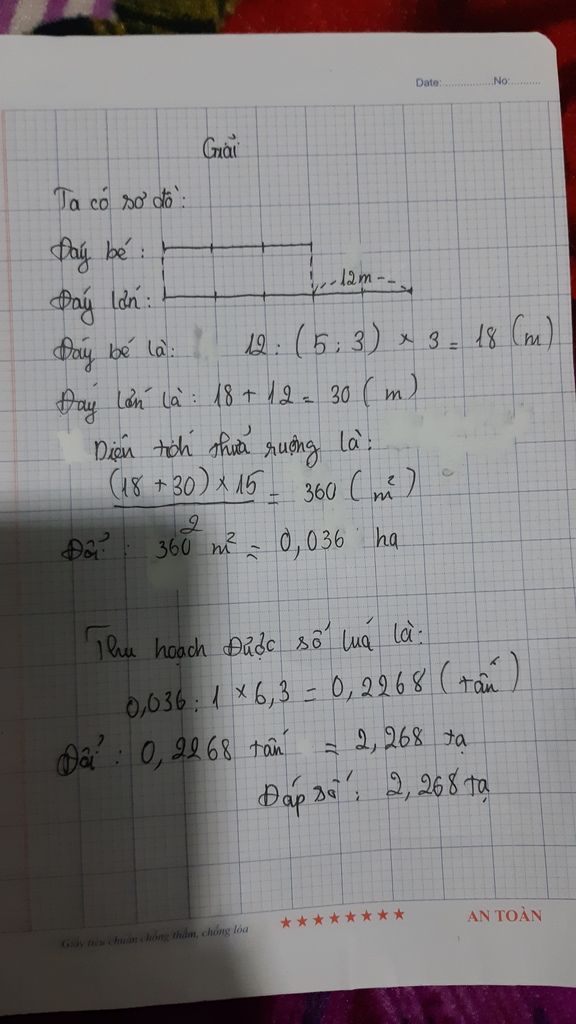 Date: ................No:..........
Giải
Ta có sơ đồ:
Đáy bé:
12m
Đáy lớn:
Đáy bé là: 12 : (5 : 3) × 3 = 18 (m)
Đáy lớn là: 18 + 12 = 30 (m)
Diện tích thửa ruộng là:
(18 + 30) × 15 = 360 (m²)
2
Đổi: 360 m² = 0,036 ha
Thu hoạch được số luá là:
0,036 : 1 × 6,3 = 0,2268 (tấn)
Đổi: 0,2268 tấn = 2,268 tạ
Đáp số: 2,268 tạ
Giấy tiêu chuẩn chống thấm, chống lóa
AN TOÀN